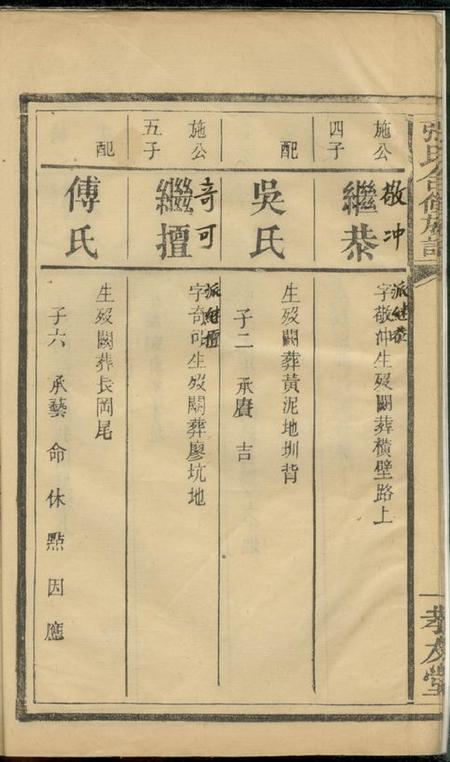 張氏合修族譜
孝友堂
施公
四子
敬冲
繼恭
派継恭
字敬冲生殁闕葬橫壁路上
配
吳氏
生殁闕葬黃泥地圳背
子二 承賡 吉
施公
五子
奇可
繼擅
派継擅
字奇可生殁闕葬廖坑地
配
傅氏
生殁闕葬長岡尾
子六 承藝 命 休 點 因 應